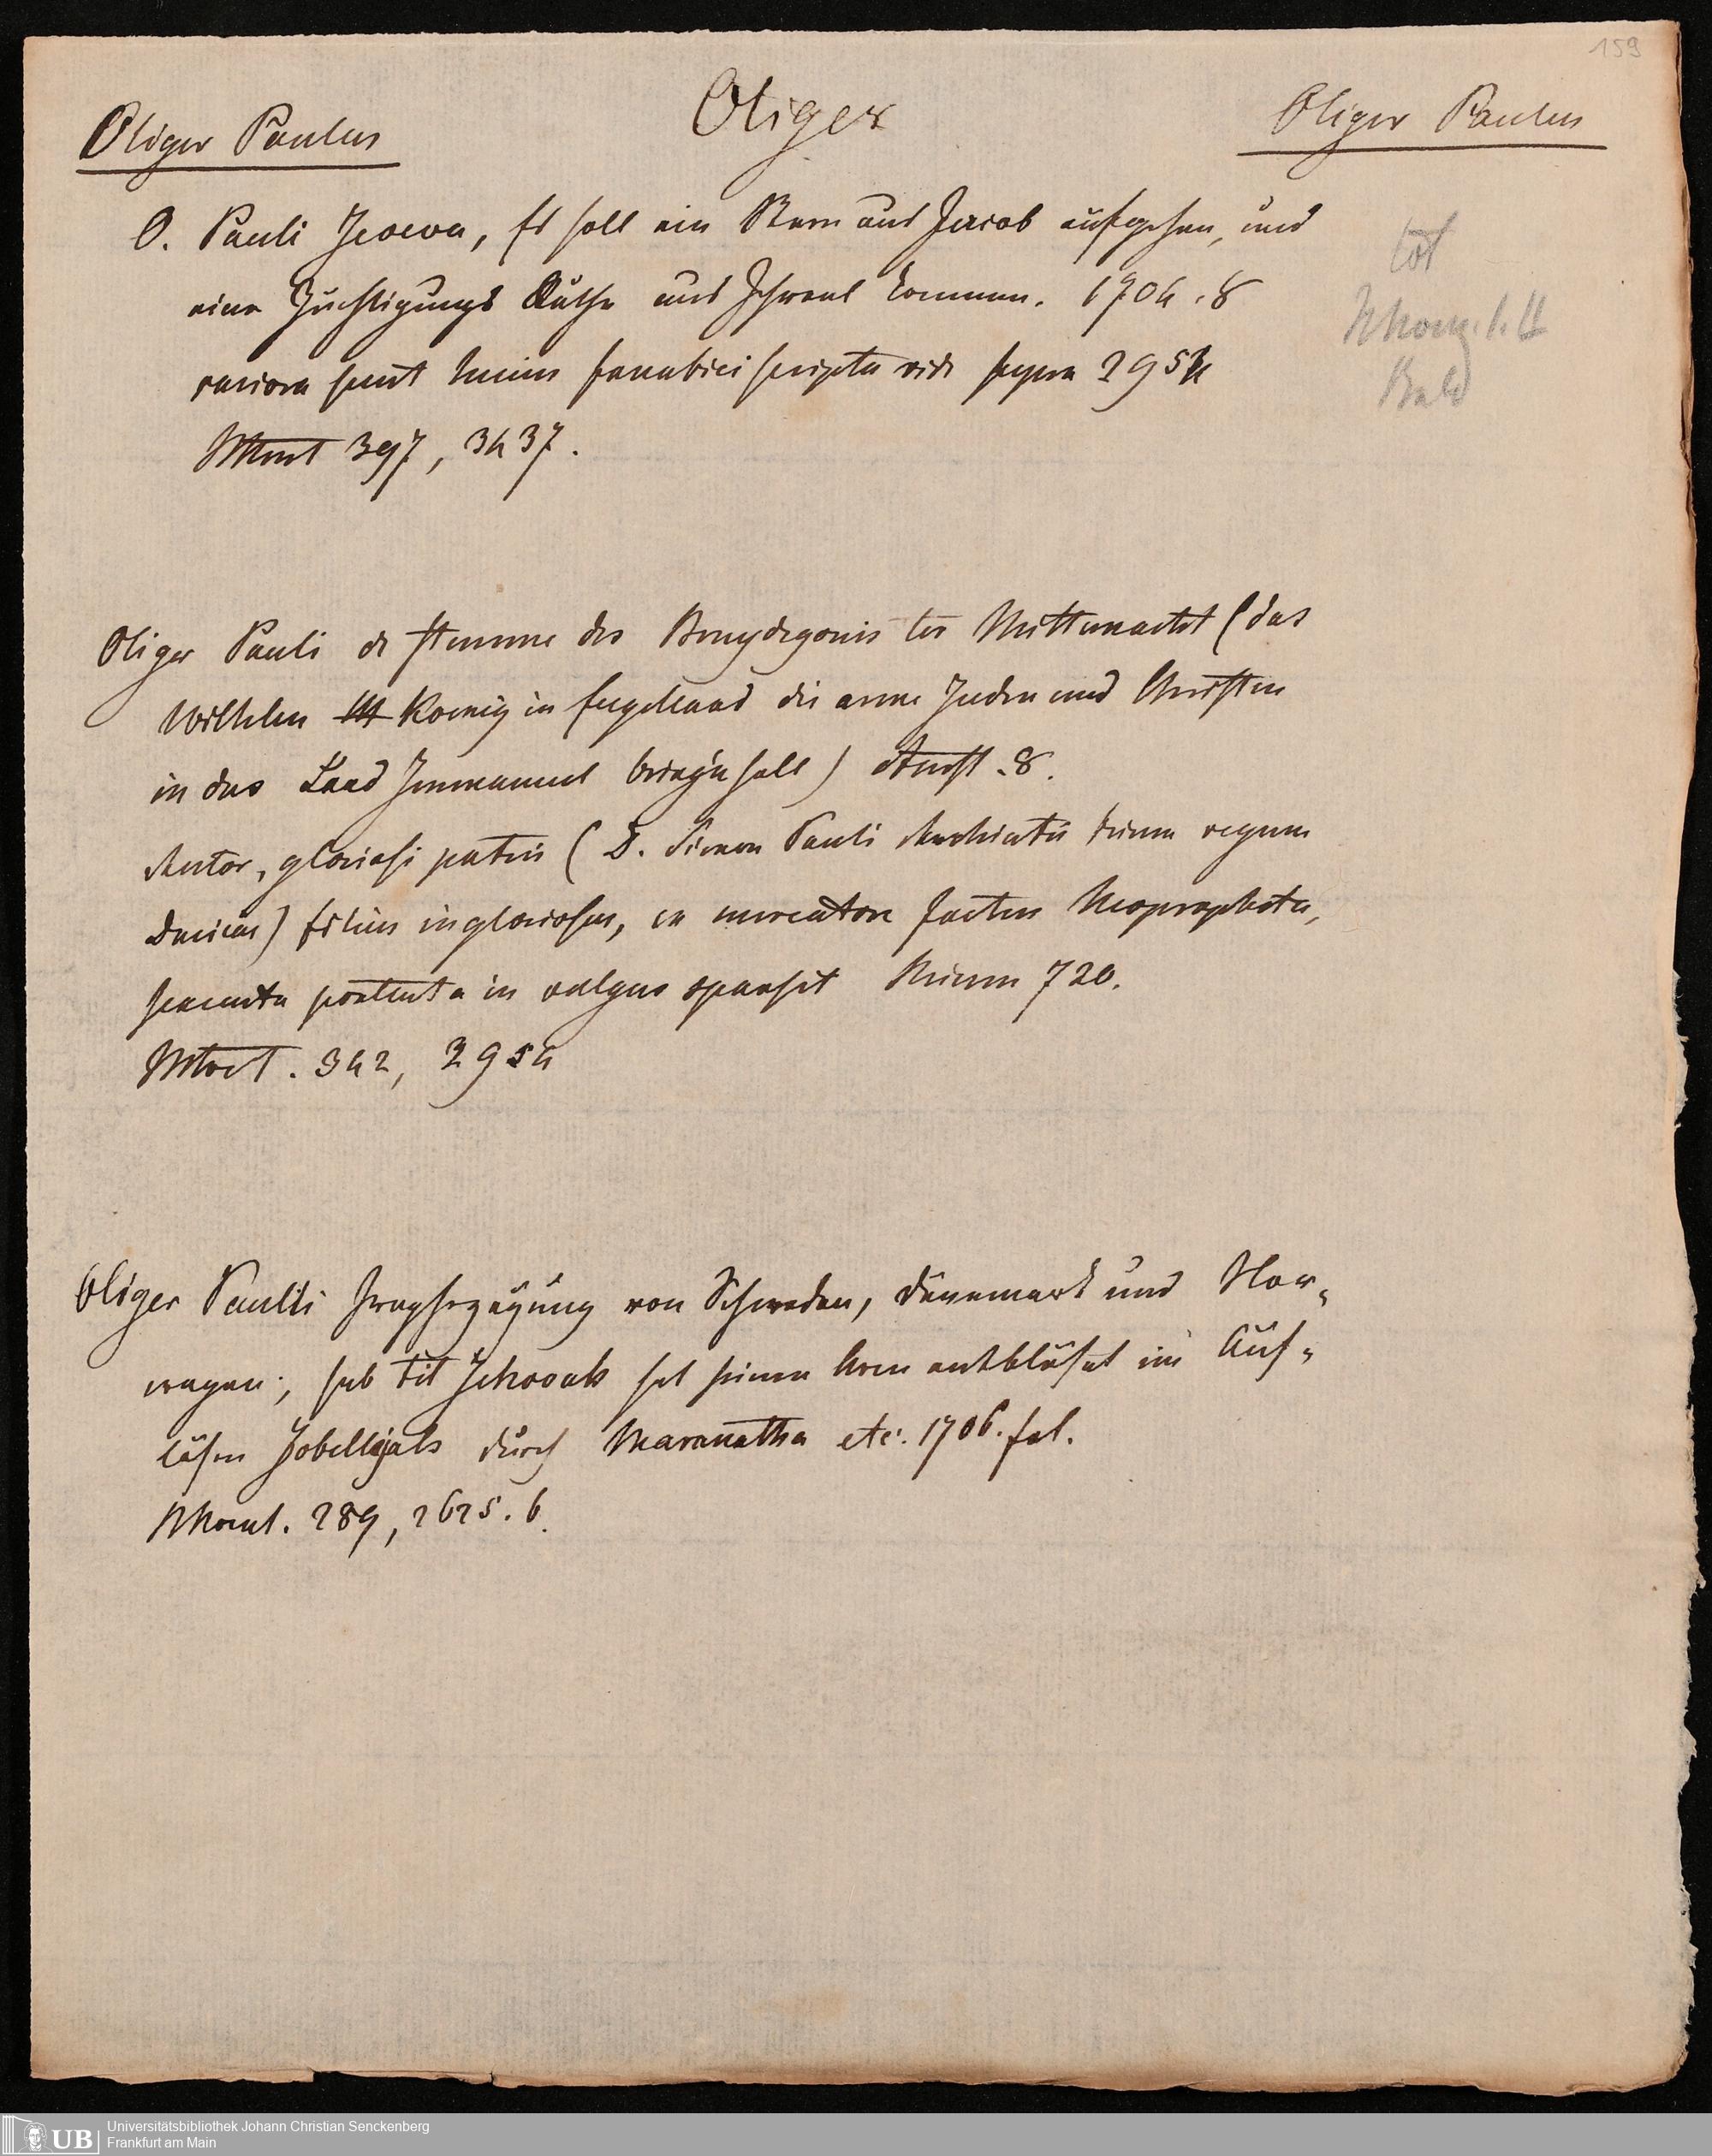 159
Oliger Paulus
Oliger
Oliger Paulus
O. Pauli Jeova, Es soll ein Stern aus Jacob aufgehen, und
eine Züchtigungs Ruthe aus Jsrael kommen. 1704. 8
rariora sunt huius fanatici scripta vide supra 2954
397, 3437.
tot
Bald
Oliger Pauli de stemme des Bruydegoms ter Mitternacht (das
Wilhelm III Koenig in Engelland die arme Juden und Christen
in das Land Immanuel bringen soll) Amst. 8.
Autor, gloriosi patris (D. Simon Pauli Archiatri trium regum
Daniae) filius ingloriosus, ex mercatore factus Neopropheta,
portenta in vulgus sparsit 720.
342, 2954
Oliger Paulli von Schweden, Dänemark und Nor-
wegen; sub tit Jehovah hat seinen Arm entblöset im Auf-
durch Maranatha etc. 1706. fol.
289, 2625. 6.
Universitätsbibliothek Johann Christian Senckenberg
UB
Frankfurt am Main